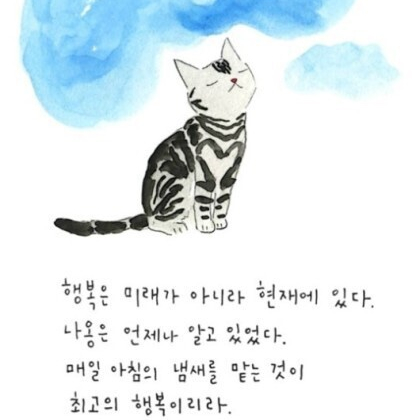 행복은 미래가 아니라 현재에 있다.
나옹은 언제나 알고 있었다.
매일 아침의 냄새를 맡는 것이
최고의 행복이리라.